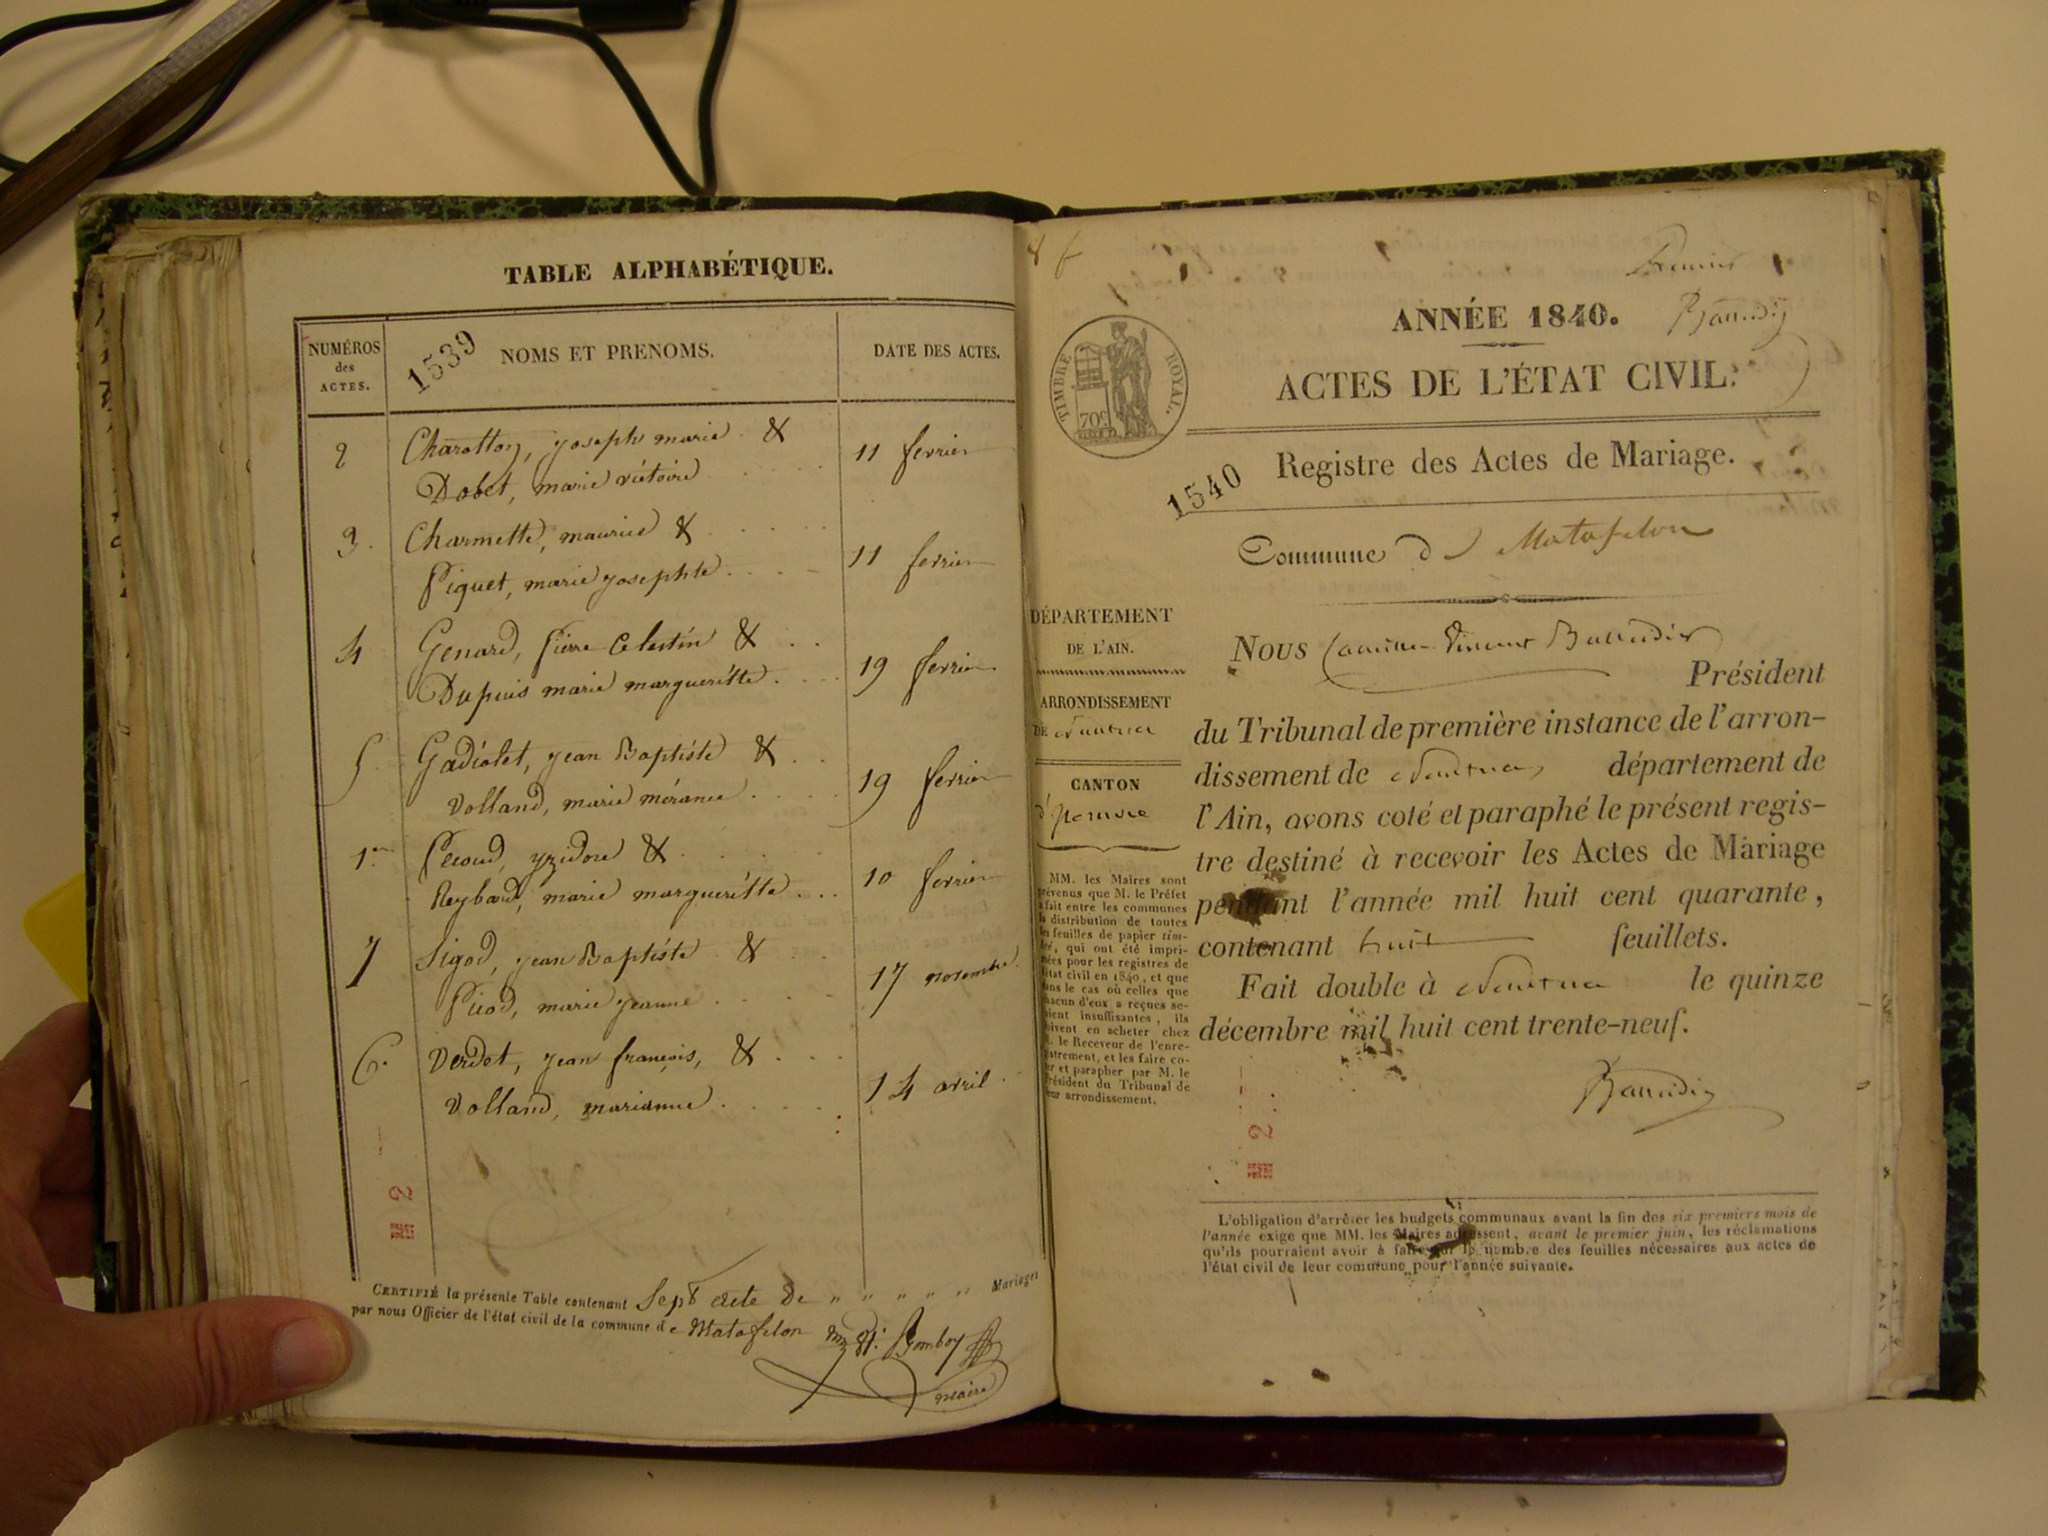 TABLE ALPHABÉTIQUE.
NUMÉROS
des
ACTES.
1539
NOMS ET PRENOMS.
DATE DES ACTES.
2 Charotton, joseph marie & 11 fevrier
Dobet, marie victoire
3. Charmette, maurice & 11 fevrier
Piquet, marie josephte
4 Genard, Pierre Celestin & 19 fevrier
Dupuis marie margueritte
5 Gadiolet, jean Baptiste & 19 fevrier
Volland, marie
1er Pecoud, yzidore & 10 fevrier
Reybaud, marie margueritte
7 Sigod, jean Baptiste & 17 novembre
Picod, marie jeanne
6. Verdet, jean françois, & 14 avril
Volland, marianne
CERTIFIÉ la présente Table contenant Sept acte de " " " " " Mariages
par nous Officier de l'état civil de la commune de Matafelon Bomboy
maire
Premier
ANNÉE 1840.
TIMBRE ROYAL.
70c
ACTES DE L'ÉTAT CIVIL.
1540
Registre des Actes de Mariage.
Commune de Matafelon
DÉPARTEMENT
DE L'AIN.
ARRONDISSEMENT
DE Nantua
CANTON
MM. les Maires sont
prévenus que M. le Préfet
a fait entre les communes
la distribution de toutes
les feuilles de papier tim-
bré, qui ont été impri-
mées pour les registres de
état civil en 1840, et que
dans le cas où celles que
chacun d'eux a reçues se-
raient insuffisantes, ils
doivent en acheter chez
M. le Receveur de l'enre-
gistrement, et les faire co-
ter et parapher par M. le
Président du Tribunal de
leur arrondissement.
NOUS Camille Vincent
Président
du Tribunal de première instance de l'arron-
dissement de Nantua, département de
l'Ain, avons coté et paraphé le présent regis-
tre destiné à recevoir les Actes de Mariage
pendant l'année mil huit cent quarante,
contenant huit feuillets.
Fait double à Nantua le quinze
décembre mil huit cent trente-neuf.
L'obligation d'arrêter les budgets communaux avant la fin des six premiers mois de
l'année exige que MM. les Maires adressent, avant le premier juin, les réclamations
qu'ils pourraient avoir à faire sur le nombre des feuilles nécessaires aux actes de
l'état civil de leur commune pour l'année suivante.